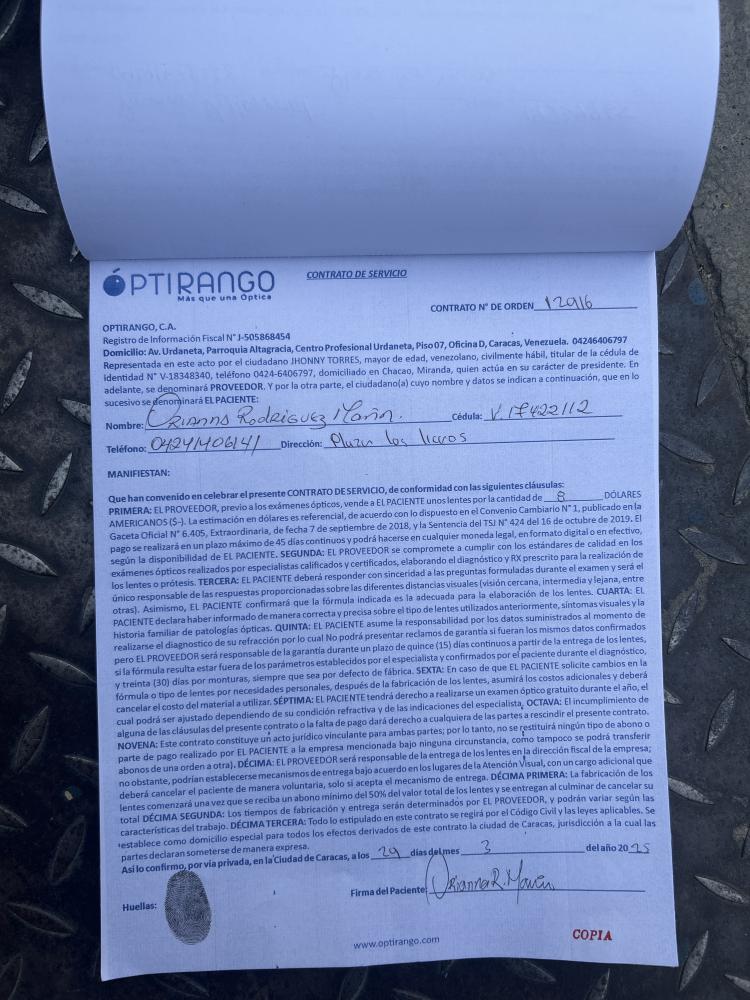 OPTIRANGO
Más que una Óptica
CONTRATO DE SERVICIO
CONTRATO N° DE ORDEN 12916
OPTIRANGO, C.A.
Registro de Información Fiscal N° J-505868454
Domicilio: Av. Urdaneta, Parroquia Altagracia, Centro Profesional Urdaneta, Piso 07, Oficina D, Caracas, Venezuela. 04246406797
Representada en este acto por el ciudadano JHONNY TORRES, mayor de edad, venezolano, civilmente hábil, titular de la cédula de
identidad N° V-18348340, teléfono 0424-6406797, domiciliado en Chacao, Miranda, quien actúa en su carácter de presidente. En
adelante, se denominará PROVEEDOR. Y por la otra parte, el ciudadano(a) cuyo nombre y datos se indican a continuación, que en lo
sucesivo se denominará EL PACIENTE:
Nombre: Orianna Rodriguez Marin. Cédula: V. 17422112
Teléfono: 04241406141 Dirección: Plaza los
MANIFIESTAN:
Que han convenido en celebrar el presente CONTRATO DE SERVICIO, de conformidad con las siguientes cláusulas:
PRIMERA: EL PROVEEDOR, previo a los exámenes ópticos, vende a EL PACIENTE unos lentes por la cantidad de 8 DÓLARES
AMERICANOS ($-). La estimación en dólares es referencial, de acuerdo con lo dispuesto en el Convenio Cambiario N° 1, publicado en la
Gaceta Oficial N° 6.405, Extraordinaria, de fecha 7 de septiembre de 2018, y la Sentencia del TSJ N° 424 del 16 de octubre de 2019. El
pago se realizará en un plazo máximo de 45 días continuos y podrá hacerse en cualquier moneda legal, en formato digital o en efectivo,
según la disponibilidad de EL PACIENTE. SEGUNDA: EL PROVEEDOR se compromete a cumplir con los estándares de calidad en los
exámenes ópticos realizados por especialistas calificados y certificados, elaborando el diagnóstico y RX prescrito para la realización de
los lentes o prótesis. TERCERA: EL PACIENTE deberá responder con sinceridad a las preguntas formuladas durante el examen y será el
único responsable de las respuestas proporcionadas sobre las diferentes distancias visuales (visión cercana, intermedia y lejana, entre
otras). Asimismo, EL PACIENTE confirmará que la fórmula indicada es la adecuada para la elaboración de los lentes. CUARTA: EL
PACIENTE declara haber informado de manera correcta y precisa sobre el tipo de lentes utilizados anteriormente, síntomas visuales y la
historia familiar de patologías ópticas. QUINTA: EL PACIENTE asume la responsabilidad por los datos suministrados al momento de
realizarse el diagnostico de su refracción por lo cual No podrá presentar reclamos de garantía si fueran los mismos datos confirmados
pero EL PROVEEDOR será responsable de la garantía durante un plazo de quince (15) días continuos a partir de la entrega de los lentes,
si la fórmula resulta estar fuera de los parámetros establecidos por el especialista y confirmados por el paciente durante el diagnóstico,
y treinta (30) días por monturas, siempre que sea por defecto de fábrica. SEXTA: En caso de que EL PACIENTE solicite cambios en la
fórmula o tipo de lentes por necesidades personales, después de la fabricación de los lentes, asumirá los costos adicionales y deberá
cancelar el costo del material a utilizar. SÉPTIMA: EL PACIENTE tendrá derecho a realizarse un examen óptico gratuito durante el año, el
cual podrá ser ajustado dependiendo de su condición refractiva y de las indicaciones del especialista. OCTAVA: El incumplimiento de
alguna de las cláusulas del presente contrato o la falta de pago dará derecho a cualquiera de las partes a rescindir el presente contrato.
NOVENA: Este contrato constituye un acto jurídico vinculante para ambas partes; por lo tanto, no se restituirá ningún tipo de abono o
parte de pago realizado por EL PACIENTE a la empresa mencionada bajo ninguna circunstancia, como tampoco se podrá transferir
abonos de una orden a otra). DÉCIMA: EL PROVEEDOR será responsable de la entrega de los lentes en la dirección fiscal de la empresa;
no obstante, podrían establecerse mecanismos de entrega bajo acuerdo en los lugares de la Atención Visual, con un cargo adicional que
deberá cancelar el paciente de manera voluntaria, solo si acepta el mecanismo de entrega. DÉCIMA PRIMERA: La fabricación de los
lentes comenzará una vez que se reciba un abono mínimo del 50% del valor total de los lentes y se entregan al culminar de cancelar su
total DÉCIMA SEGUNDA: Los tiempos de fabricación y entrega serán determinados por EL PROVEEDOR, y podrán variar según las
características del trabajo. DÉCIMA TERCERA: Todo lo estipulado en este contrato se regirá por el Código Civil y las leyes aplicables. Se
establece como domicilio especial para todos los efectos derivados de este contrato la ciudad de Caracas, jurisdicción a la cual las
partes declaran someterse de manera expresa.
Asi lo confirmo, por via privada, en la Ciudad de Caracas, a los 29 días del mes 3 del año 2025
Firma del Paciente: Orianna R. Marin
Huellas:
www.optirango.com
COPIA